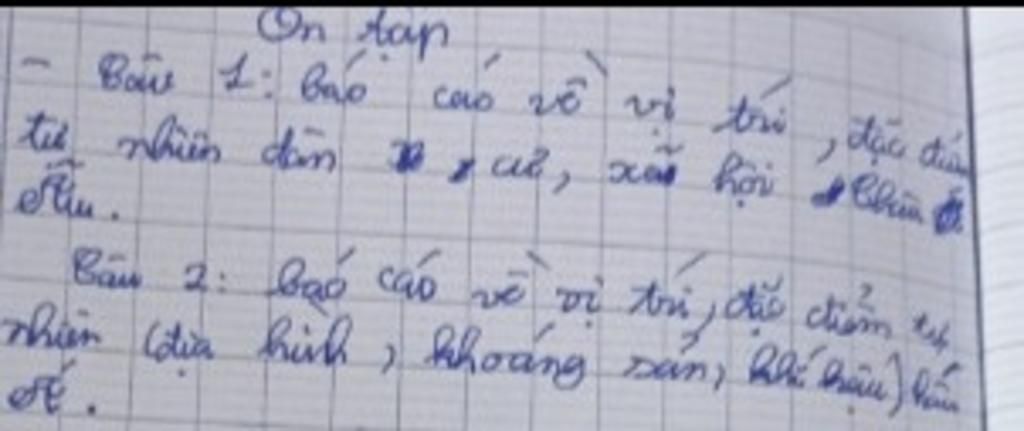 Ôn tập
- Câu 1: Báo cáo về vị trí, đặc điểm
tự nhiên dân cư, xã hội Châu
Âu.
Câu 2: Báo cáo về vị trí, đặc điểm tự
nhiên (địa hình, khoáng sản, khí hậu)